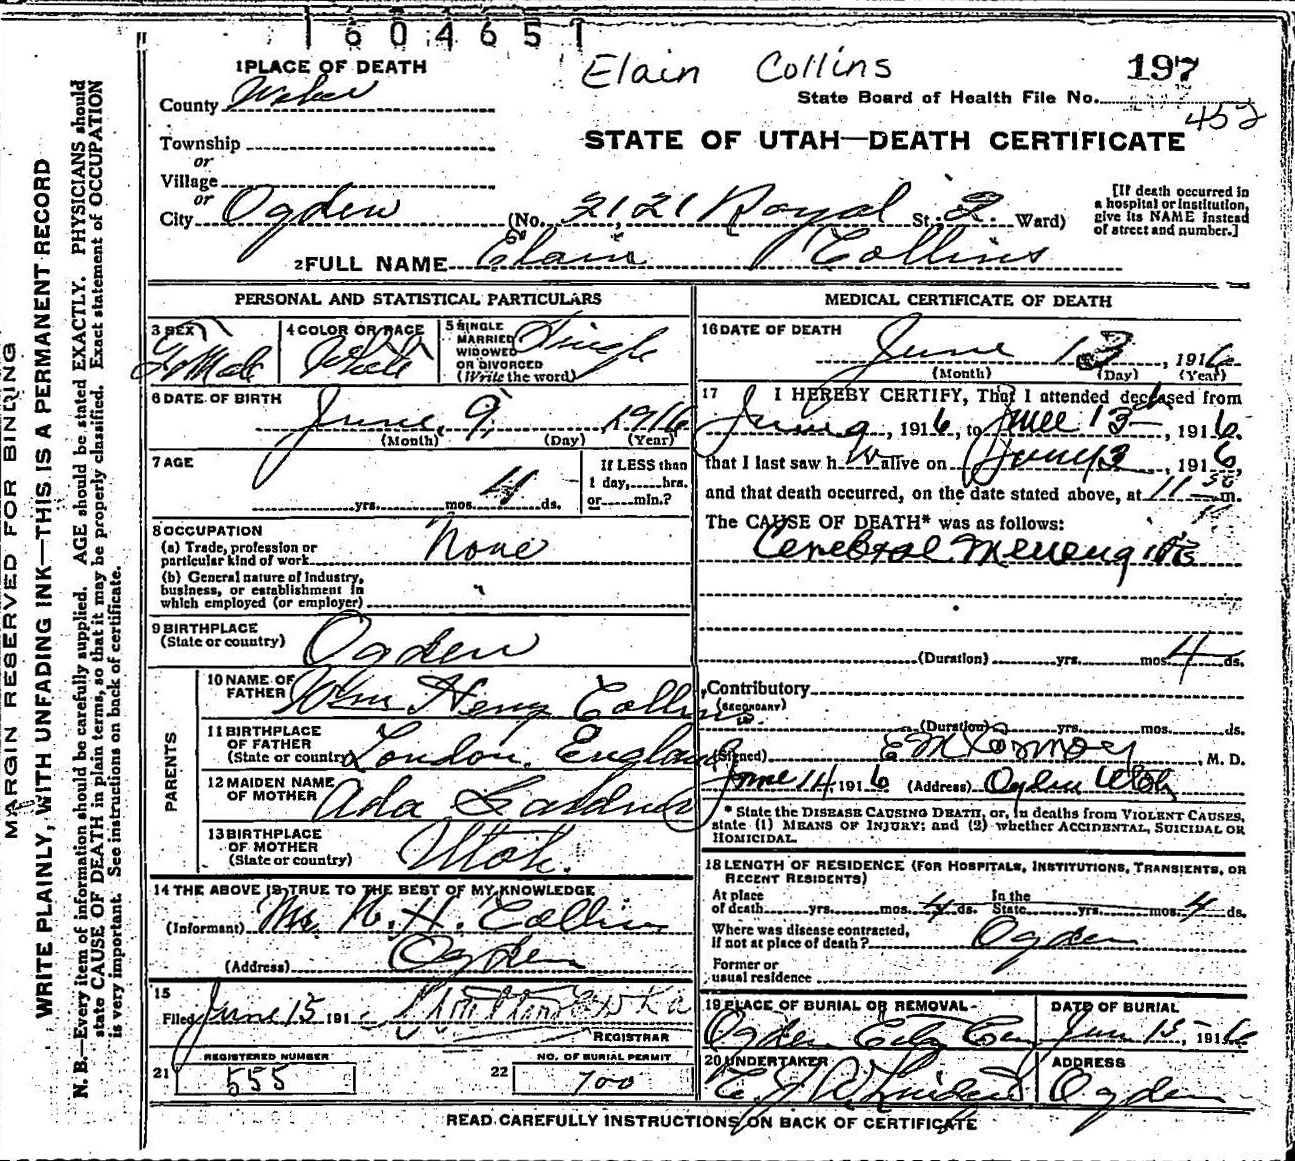 1604651
Elain Collins
197
State Board of Health File No.
452
1 PLACE OF DEATH
County Weber
STATE OF UTAH—DEATH CERTIFICATE
Township
or
Village
or
City Ogden (No. 2121 Royal St; 2. Ward)
[If death occurred in
a hospital or institution,
give its NAME instead
of street and number.]
2 FULL NAME Elain Collins
PERSONAL AND STATISTICAL PARTICULARS
3 SEX
FeMale
4 COLOR OR RACE
White
5 SINGLE
MARRIED
WIDOWED
OR DIVORCED
(Write the word)
Single
6 DATE OF BIRTH
June 9, 1916
(Month) (Day) (Year)
7 AGE
yrs. mos. 4 ds.
If LESS than
1 day, hrs.
or min.?
8 OCCUPATION
(a) Trade, profession or
particular kind of work None
(b) General nature of industry,
business, or establishment in
which employed (or employer)
9 BIRTHPLACE
(State or country) Ogden
PARENTS
10 NAME OF
FATHER Wm Henry Collins
11 BIRTHPLACE
OF FATHER
(State or country) London, England
12 MAIDEN NAME
OF MOTHER Ada
13 BIRTHPLACE
OF MOTHER
(State or country) Utah.
14 THE ABOVE IS TRUE TO THE BEST OF MY KNOWLEDGE
(Informant) H. Collins
(Address) Ogden
15
Filed June 15 191
REGISTRAR
REGISTERED NUMBER
21 555
NO. OF BURIAL PERMIT
22 700
MEDICAL CERTIFICATE OF DEATH
16 DATE OF DEATH
June 13, 1916
(Month) (Day) (Year)
17 I HEREBY CERTIFY, That I attended deceased from
June 9, 1916, to June 13, 1916.
that I last saw h alive on June 13, 1916,
and that death occurred, on the date stated above, at 11 m.
The CAUSE OF DEATH* was as follows:
Cerebral Menengitis
(Duration) yrs. mos. 4 ds.
Contributory
(SECONDARY)
(Duration) yrs. mos. ds.
(Signed) , M. D.
June 14 1916 (Address) Ogden Utah
* State the DISEASE CAUSING DEATH, or, in deaths from VIOLENT CAUSES,
state (1) MEANS OF INJURY; and (2) whether ACCIDENTAL, SUICIDAL OR
HOMICIDAL.
18 LENGTH OF RESIDENCE (FOR HOSPITALS, INSTITUTIONS, TRANSIENTS, OR
RECENT RESIDENTS)
At place
of death yrs. mos. 4 ds. In the
State yrs. mos. 4 ds.
Where was disease contracted,
if not at place of death? Ogden
Former or
usual residence
19 PLACE OF BURIAL OR REMOVAL
Ogden City Cem
DATE OF BURIAL
June 15, 1916
20 UNDERTAKER
ADDRESS
Ogden
READ CAREFULLY INSTRUCTIONS ON BACK OF CERTIFICATE
MARGIN RESERVED FOR BINDING
WRITE PLAINLY, WITH UNFADING INK—THIS IS A PERMANENT RECORD
N. B.—Every item of information should be carefully supplied. AGE should be stated EXACTLY. PHYSICIANS should
state CAUSE OF DEATH in plain terms, so that it may be properly classified. Exact statement of OCCUPATION
is very important. See instructions on back of certificate.